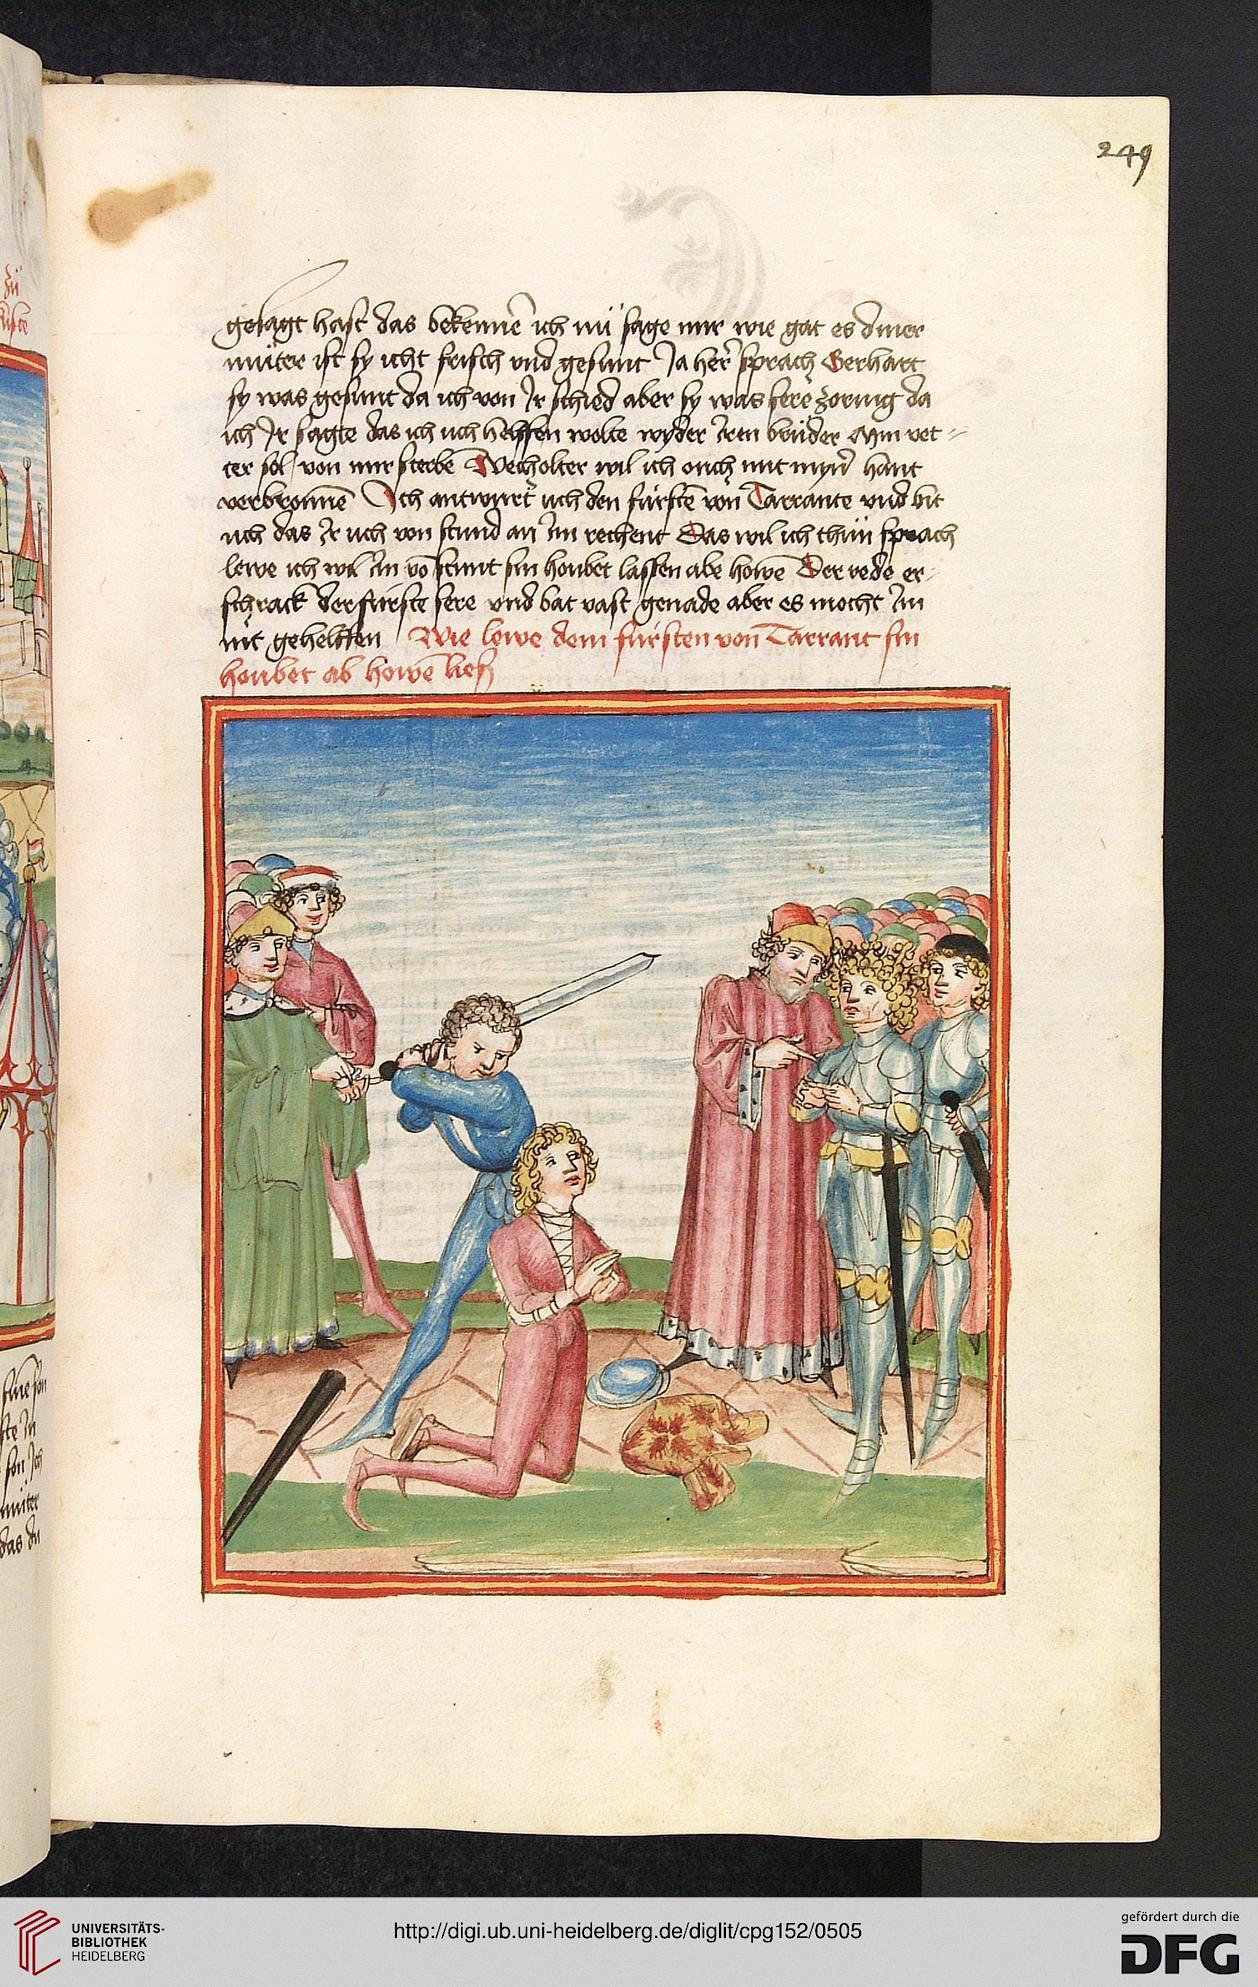 249
gesagt hast das bekennē ich nů sage mir wie gat es diner
můter ist sy icht frisch vnd gesunt Ja her sprach Gerhart
sy was gesunt da ich von Ir schied aber sy was sere zornig da
ich Ir sagte das ich uch helffen wolte wyder Iren brůder Myn vet-
ter sol von mir sterbē Wecholter wil ich ouch mit myn̄ hant
verbronnē Ich antwurt uch den fürstē von Tarrante vnd bit
uch das Ir uch von stund an Im rechent Das wil ich thůn sprach
lewe ich wil Im vō stunt sin houbet lassen abe howē Der rede er-
schrack der fürste sere vnd bat vast genade aber es mocht Im
nit gehelffen Wie lewe dem fürsten von Tarrant sin
houbet ab howē ließ
zů
můter
das du
UNIVERSITÄTS-
BIBLIOTHEK
HEIDELBERG
http://digi.ub.uni-heidelberg.de/diglit/cpg152/0505
gefördert durch die
DFG